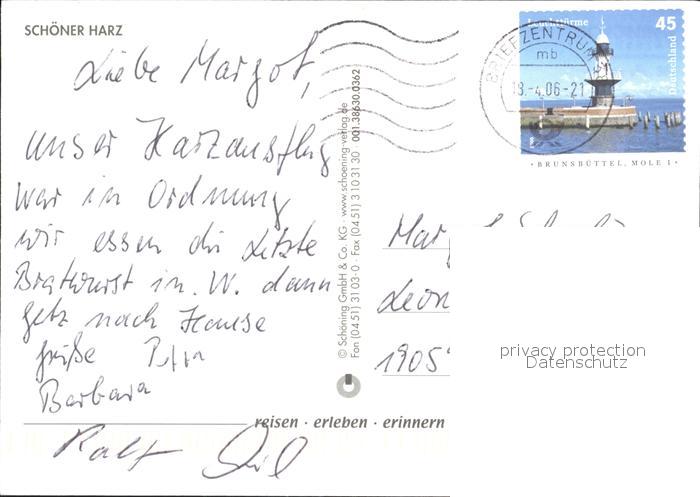 SCHÖNER HARZ
Liebe Margot,
unser Harzausflug
war in Ordnung
wir essen die Letzte
Bratwurst in. W. dann
getz nach Hause
grüße Petra
Barbara
Ralf
© Schöning GmbH & Co. KG · www.schoening-verlag.de
Fon (04 51) 31 03-0 · Fax (04 51) 3 10 31 30 · 001.38630.0362
reisen · erleben · erinnern
Leuchttürme
45
Deutschland
BRIEFZENTRUM
mb
18.-4.06-21
· BRUNSBÜTTEL, MOLE 1 ·
Leon
1905
privacy protection
Datenschutz